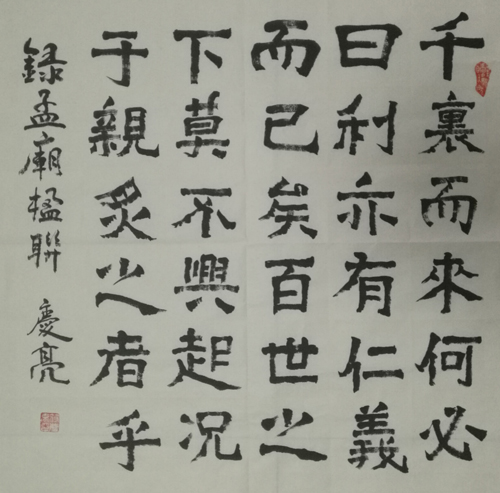 千裏而來何必
曰利亦有仁義
而已矣百世之
下莫不興起况
于親炙之者乎
録孟廟楹聯 慶亮